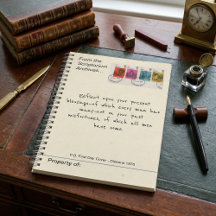 From the
Scriptorium
Archives...
Reflect upon your present
blessings of which every man has
many—not on your past
misfortunes, of which all men
have some.
Property of: